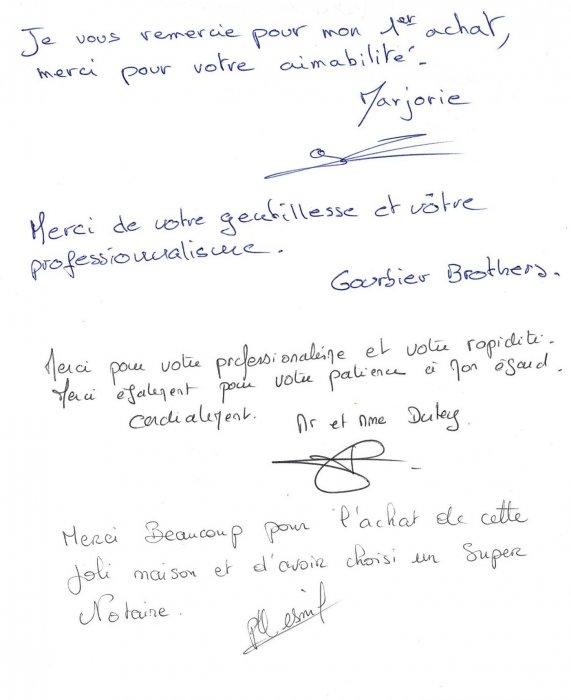 Je vous remercie pour mon 1er achat,
merci pour votre aimabilité.
Marjorie
Merci de votre gentillesse et vôtre
professionnalisme.
Gourbier Brothers.
Merci pour votre professionalisme et votre rapidité.
Merci également pour votre patience à mon égard.
Cordialement. Mr et Mme Duley
Merci Beaucoup pour l'achat de cette
Joli maison et d'avoir choisi un Super
Notaire.